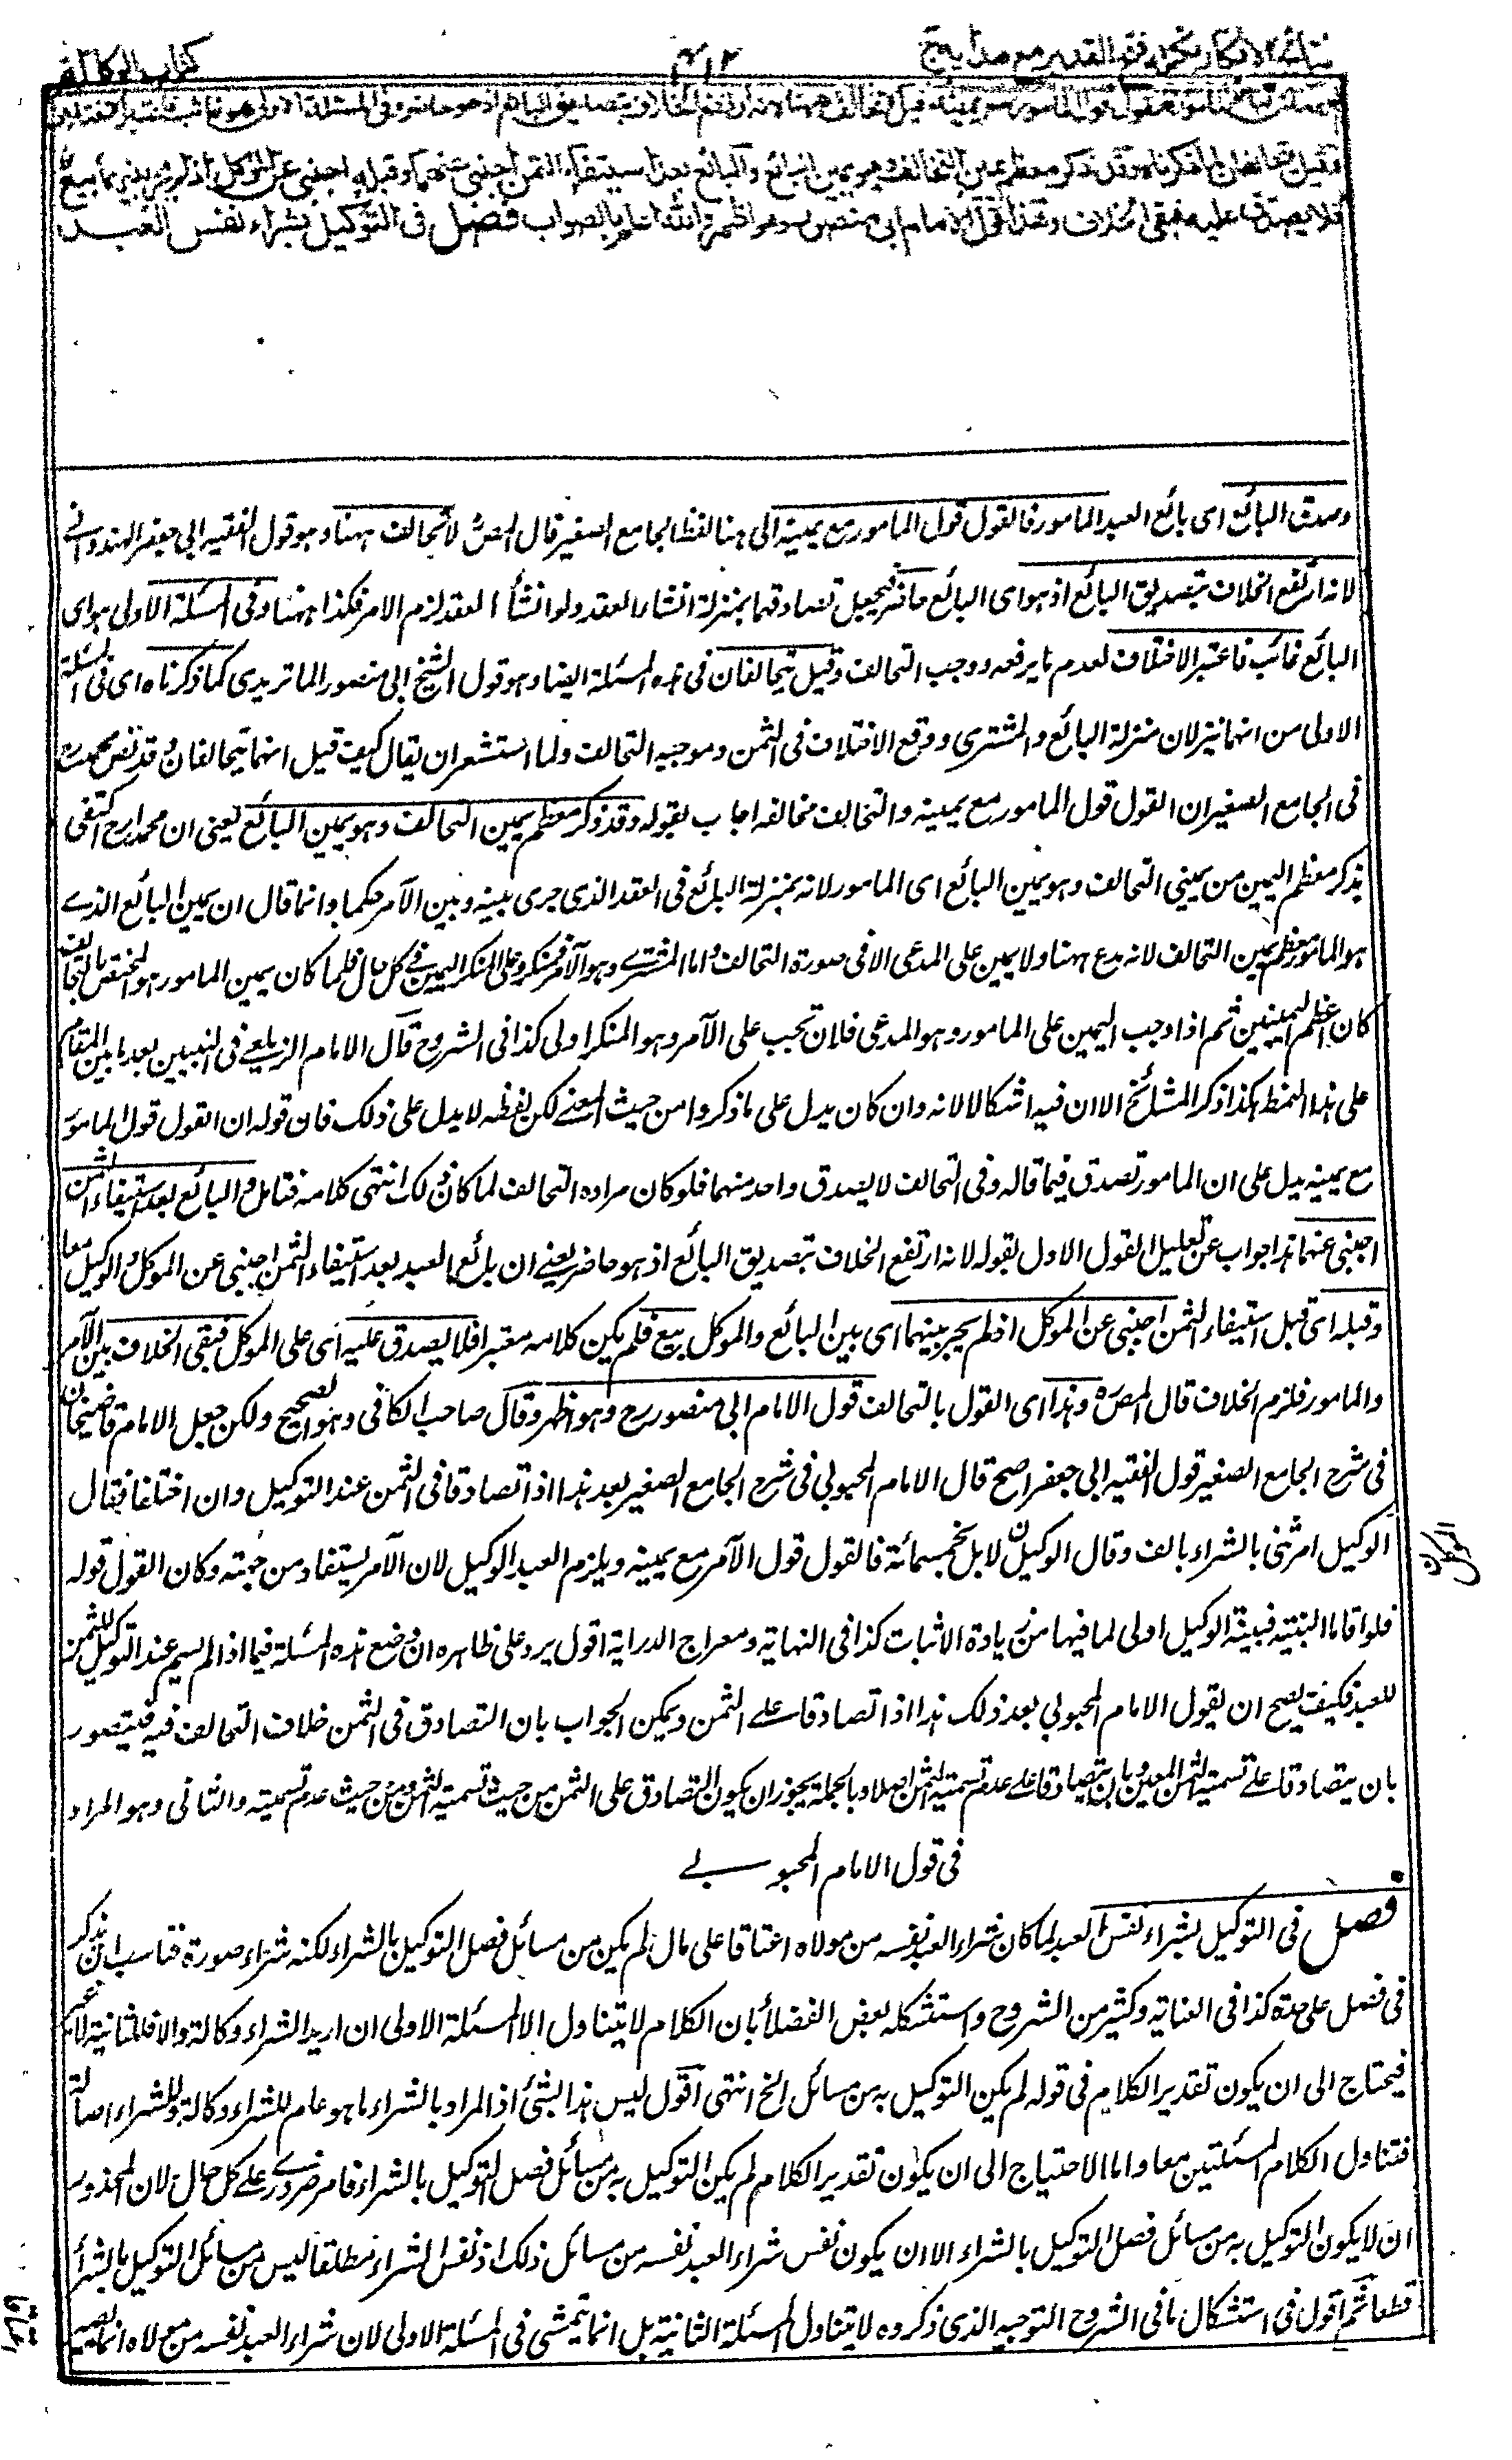 نتائج الافكار تكملة فتح القدير مع هداية ج
كتاب الوكالة
وقيل يتحالفان لما ذكرناه وقد ذكر معظم يمين التحالف وهو يمين البائع والبائع بعد استيفاء الثمن اجنبى عنهما وقبله اجنبى عن الموكل اذ لم يجر بينهما بيع
فلا يصدق عليه فبقى الخلاف وهذا قول الامام ابى منصور وهو اظهر والله اعلم بالصواب فصل فى التوكيل بشراء نفس العبد
وصدق البائع اى بائع العبد المامور فالقول قول المامور مع يمينه الى هنا لفظ الجامع الصغير قال المص لا تحالف ههنا وهو قول الفقيه ابى جعفر الهندوانى
لانه ارتفع الخلاف بتصديق البائع اذ هو اى البائع حاضر فيجعل تصادقهما بمنزلة انشاء العقد ولو انشأ العقد لزم الامر فكذا ههنا وفى المسئلة الاولى هو اى
البائع غائب فاعتبر الاختلاف لعدم ما يرفعه ووجب التحالف وقيل يتحالفان فى هذه المسئلة ايضا وهو قول الشيخ ابى منصور الماتريدى كما ذكرناه اى فى المسئلة
الاولى من انهما ينزلان منزلة البائع والمشترى ووقع الاختلاف فى الثمن وموجبه التحالف ولما استشعر ان يقال كيف قيل انهما يتحالفان وقد نص محمد رح
فى الجامع الصغير ان القول قول المامور مع يمينه والتحالف مخالفه اجاب بقوله وقد ذكر معظم يمين التحالف وهو يمين البائع يعنى ان محمدا رح اكتفى
بذكر معظم اليمين من يمينى التحالف وهو يمين البائع اى المامور لانه بمنزلة البائع فى العقد الذى جرى بينه وبين الآمر حكما وانما قال ان يمين البائع الذى
هو المامور معظم يمين التحالف لانه مدع ههنا ولا يمين على المدعى الا فى صورة التحالف واما المشترى وهو الآمر فمنكر وعلى المنكر اليمين فى كل حال فلما كان يمين المامور هو المختص بالتحالف
كان اعظم اليمينين ثم اذا وجب اليمين على المامور وهو المدعى فلان تجب على الآمر وهو المنكر اولى كذا فى الشروح قال الامام الزيلعى فى التبيين بعد ما بين المقام
على هذا النمط هكذا ذكر المشائخ الا ان فيه اشكالا لانه وان كان يدل على ما ذكروا من حيث المعنى لكن لفظه لا يدل على ذلك فان قوله ان القول قول المامور
مع يمينه يدل على ان المامور تصدق فيما قاله وفى التحالف لا يصدق واحد منهما فلو كان مراده التحالف لما كان ذلك انتهى كلامه فتامل والبائع بعد استيفاء الثمن
اجنبى عنهما هذا جواب عن تعليل القول الاول بقوله لانه ارتفع الخلاف بتصديق البائع اذ هو حاضر يعنى ان بائع العبد بعد استيفاء الثمن اجنبى عن الموكل والوكيل معا
وقبله اى قبل استيفاء الثمن اجنبى عن الموكل اذ لم يجر بينهما اى بين البائع والموكل بيع فلم يكن كلامه معتبرا فلا يصدق عليه اى على الموكل فبقى الخلاف بين الآمر
والمامور فلزم الخلاف قال المص ره وهذا اى القول بالتحالف قول الامام ابى منصور رح وهو اظهر وقال صاحب الكافى وهو الصحيح ولكن جعل الامام قاضيخان
فى شرح الجامع الصغير قول الفقيه ابى جعفر اصح قال الامام المحبوبى فى شرح الجامع الصغير بعد هذا اذا تصادقا فى الثمن عند التوكيل وان اختلفا فقال
الوكيل امرتنى بالشراء بالف وقال الوكيل لا بل بخمسمائة فالقول قول الآمر مع يمينه ويلزم العبد الوكيل لان الآمر يستفاد من جهته وكان القول قوله
فلو اقاما البينة فبينة الوكيل اولى لما فيها من زيادة الاثبات كذا فى النهاية ومعراج الدراية اقول يرد على ظاهره ان وضع هذه المسئلة فيما اذا لم يسم عند التوكيل الثمن
للعبد فكيف يصح ان يقول الامام المحبوبى بعد ذلك هذا اذا تصادقا على الثمن ويمكن الجواب بان التصادق فى الثمن خلاف التحالف فيه فيتصور
بان يتصادقا على تسمية الثمن المعين وبان يتصادقا على عدم تسمية الثمن اصلا وبالجملة يجوز ان يكون التصادق على الثمن من حيث تسمية الثمن ومن حيث عدم تسميته والثانى وهو المراد
فى قول الامام المحبوبى
فصل فى التوكيل بشراء نفس العبد لما كان شراء العبد نفسه من مولاه اعتاقا على مال لم يكن من مسائل فصل التوكيل بالشراء لكنه شراء صورة فناسب ان يذكر
فى فصل على حدة كذا فى العناية وكثير من الشروح واستشكله بعض الفضلاء بان الكلام لا يتناول الا المسئلة الاولى ان اريد الشراء وكالة والا فللثانية لا غير
فيحتاج الى ان يكون تقدير الكلام فى قوله لم يكن التوكيل به من مسائل الخ انتهى اقول ليس هذا بشئ اذ المراد بالشراء ما هو عام للشراء وكالة وللشراء اصالة
فتناول الكلام المسئلتين معا واما الاحتياج الى ان يكون تقدير الكلام لم يكن التوكيل به من مسائل فصل التوكيل بالشراء فامر ضرورى على كل حال لان المحذور
ان لا يكون التوكيل به من مسائل فصل التوكيل بالشراء الا ان يكون نفس شراء العبد نفسه من مسائل ذلك اذ نفس الشراء مطلقا ليس من مسائل التوكيل بالشراء
قطعا ثم اقول فى استشكال ما فى الشروح التوجيه الذى ذكروه لا يتناول المسئلة الثانية بل انما يتمشى فى المسئلة الاولى لان شراء العبد نفسه من مولاه انما يصير